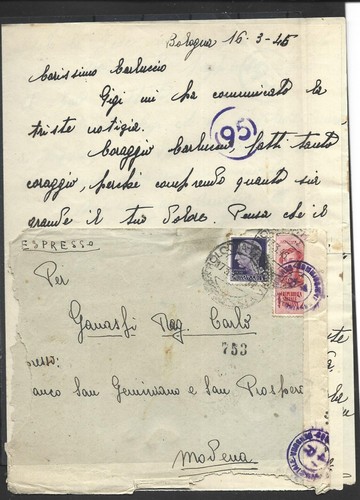 Bologna 16-3-45
Carissimo Carluccio
Gigi mi ha comunicato la
triste notizia.
95
Coraggio Carluccio, fatti tanto
coraggio, perché comprendo quanto sia
grande il tuo dolore. Pensa che il
ESPRESSO
Per
Rag. Carlo
753
presso:
anco San Geminiano e San Prospero
Modena